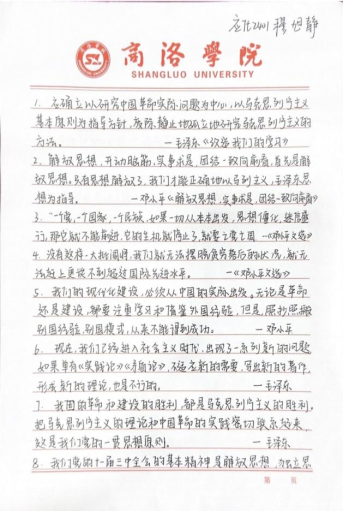 应化2401
商洛學院
SHANGLUO UNIVERSITY
1、应确立以研究中国革命实际问题为中心，以马克思列宁主义
基本原则为指导方针，废除静止地孤立地研究马克思列宁主义的
方法。 —毛泽东《改造我们的学习》
2、解放思想，开动脑筋，实事求是，团结一致向前看，首先是解放
思想。只有思想解放了，我们才能正确地以马列主义、毛泽东思
想为指导。 —邓小平《解放思想，实事求是，团结一致向前看》
3、“一个党，一个国家，一个民族，如果一切从本本出发，思想僵化，迷信盛
行，那它就不能前进，它的生机就停止了，就要亡党亡国 —《邓小平文选》
4、没有这样一大批闯将，我们就无法摆脱贫穷落后的状况，就无
法赶上更谈不到超过国际先进水平。 —《邓小平文选》
5、我们的现代化建设，必须从中国的实际出发。无论是革命
还是建设，都要注意学习和借鉴外国经验，但是，照抄照搬
别国经验、别国模式，从来不能得到成功。 —邓小平
6、现在，我们已经进入社会主义时代，出现了一系列新的问题
如果单有《实践论》《矛盾论》，不适应新的需要，写出新的著作，
形成新的理论，也是不行的。 —毛泽东
7、我国的革命和建设的胜利，都是马克思列宁主义的胜利。
把马克思列宁主义的理论和中国革命的实践密切联系起来，
这是我们党的一贯思想原则。 —毛泽东
8、我们党的十一届三中全会的基本精神是解放思想，独立思
第 页